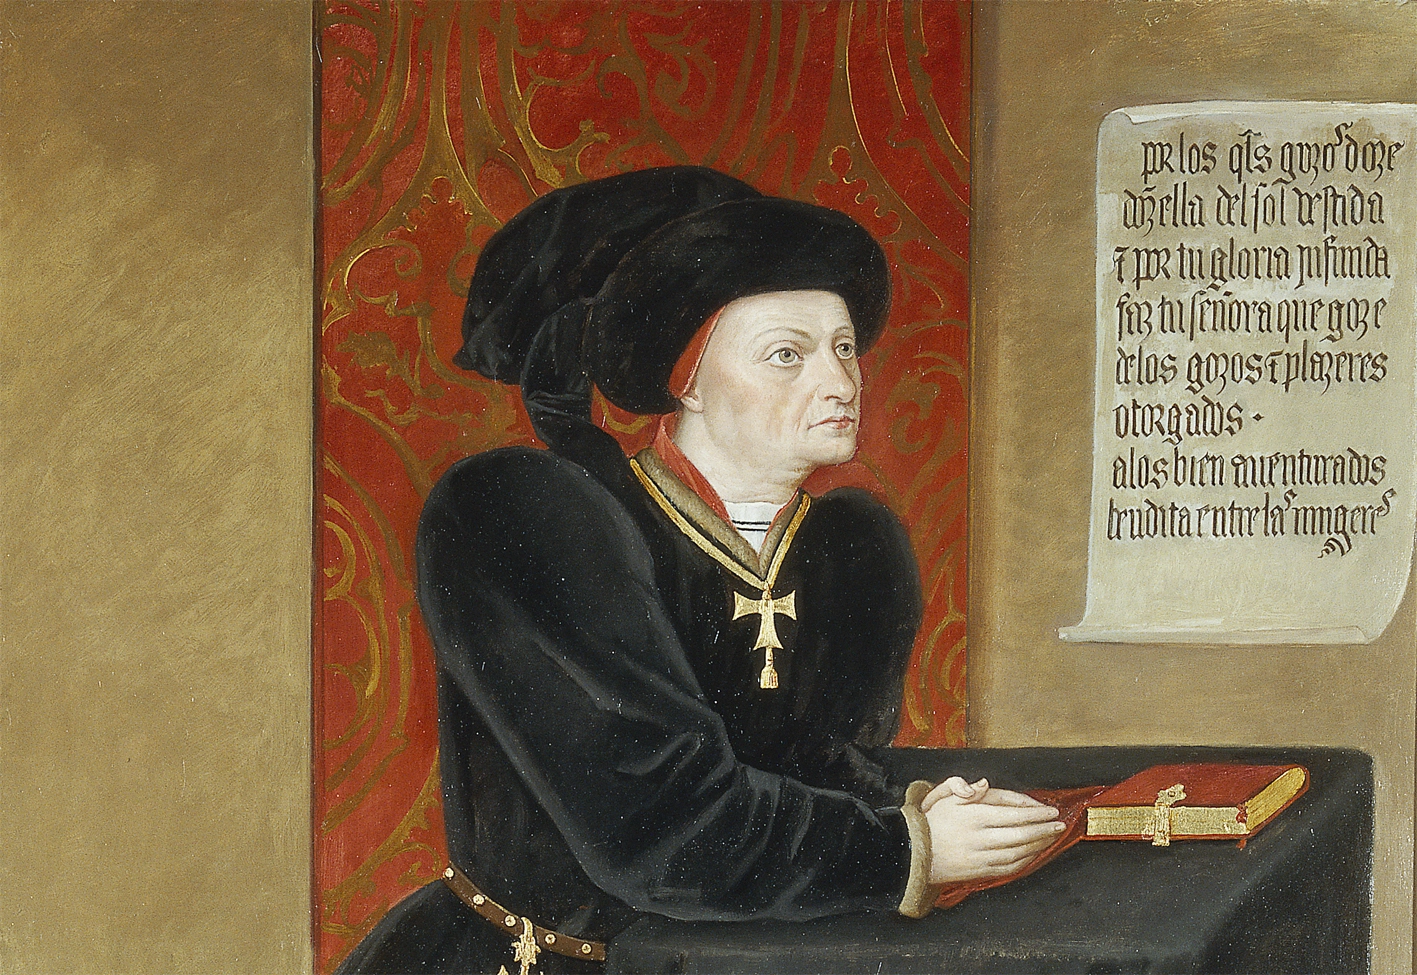 por los q̃ls gozo^s doze
dõzella del sol vestida
⁊ por tu gloria infinida
faz tu señora que goze
de los gozos ⁊ plazeres
otorgados ·
a los bien auenturados
bendita entre la^s mugere^s